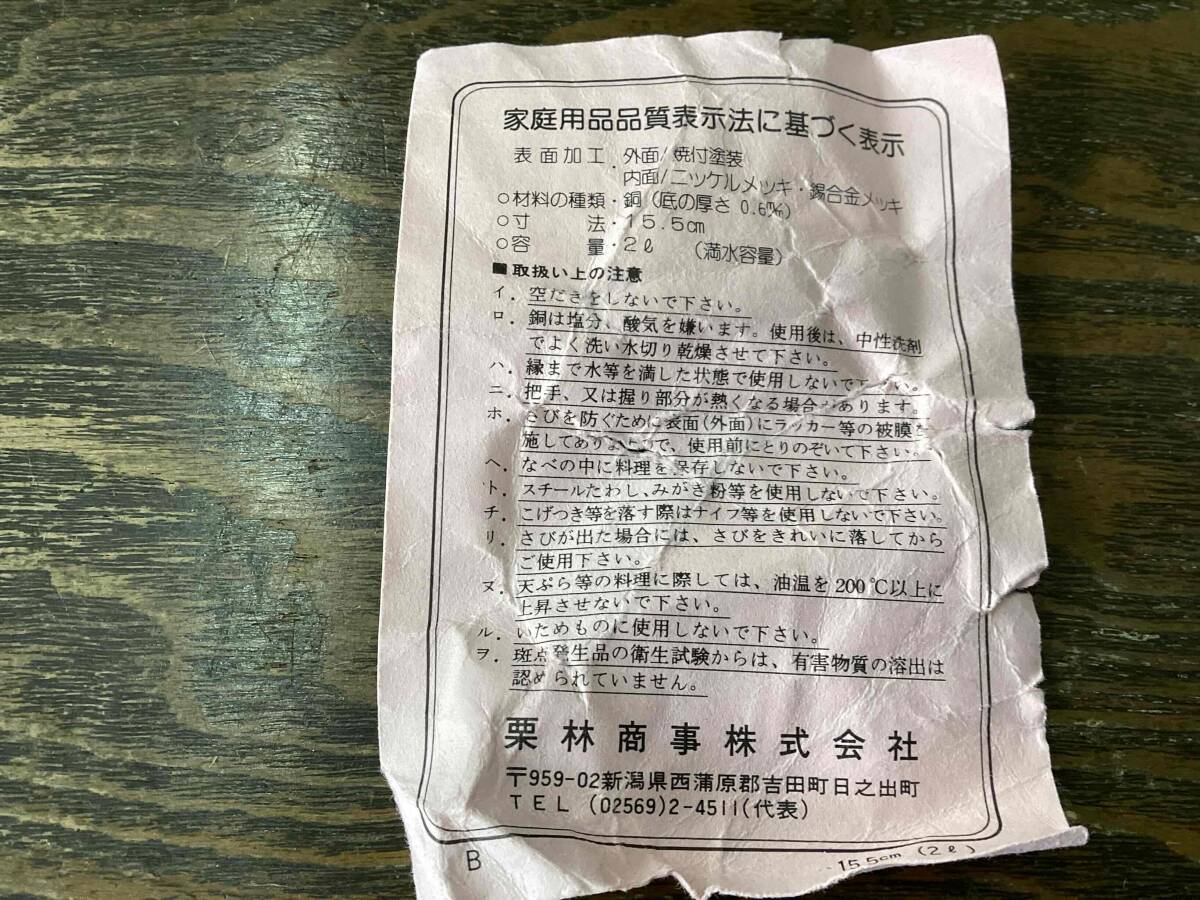 家庭用品品質表示法に基づく表示
表面加工・外面/焼付塗装
内面/ニッケルメッキ・錫合金メッキ
○材料の種類・銅(底の厚さ 0.6㎜)
○寸 法・15.5㎝
○容 量・2ℓ (満水容量)
■取扱い上の注意
イ．空だきをしないで下さい。
ロ．銅は塩分、酸気を嫌います。使用後は、中性洗剤
でよく洗い水切り乾燥させて下さい。
ハ．縁まで水等を満した状態で使用しないで下さい。
ニ．把手、又は握り部分が熱くなる場合があります。
ホ．さびを防ぐために表面(外面)にラッカー等の被膜を
施してありますので、使用前にとりのぞいて下さい。
ヘ．なべの中に料理を保存しないで下さい。
ト．スチールたわし、みがき粉等を使用しないで下さい。
チ．こげつき等を落す際はナイフ等を使用しないで下さい。
リ．さびが出た場合には、さびをきれいに落してから
ご使用下さい。
ヌ．天ぷら等の料理に際しては、油温を200℃以上に
上昇させないで下さい。
ル．いためものに使用しないで下さい。
ヲ．斑点発生品の衛生試験からは、有害物質の溶出は
認められていません。
栗林商事株式会社
〒959-02新潟県西蒲原郡吉田町日之出町
TEL (02569)2-4511(代表)
B
15.5cm (2ℓ)